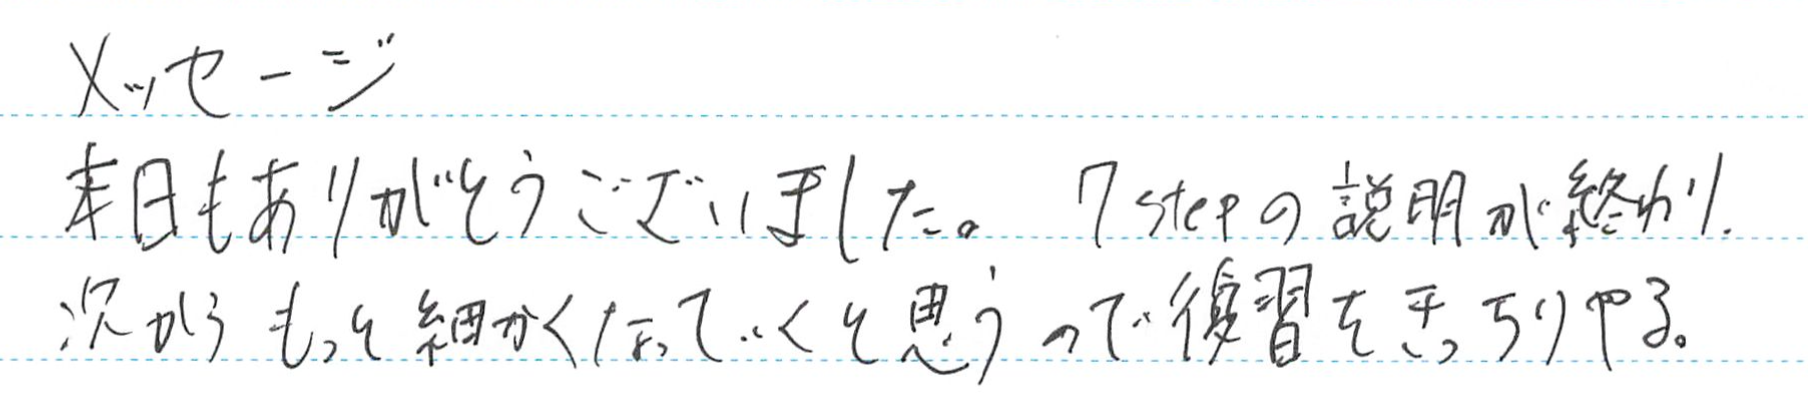 メッセージ
本日もありがとうございました。 7stepの説明が終わり、
次からもっと細かくなっていくと思うので復習をきっちりやる。